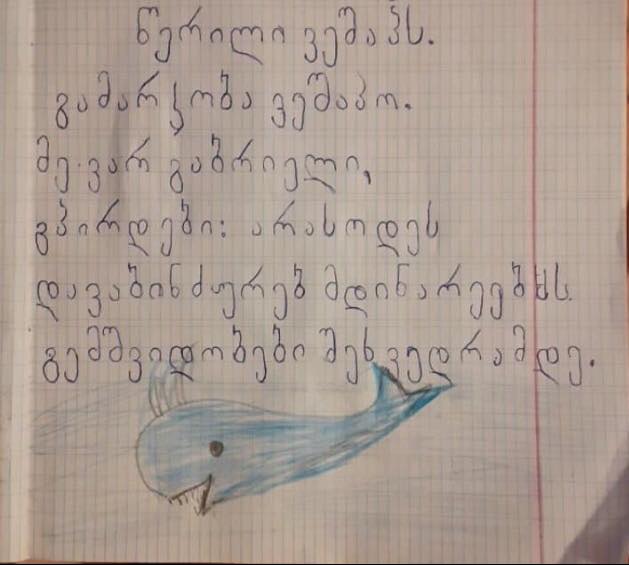 წერილი ვეშაპს.
გამარჯობა ვეშაპო.
მე ვარ გაბრიელი,
გპირდები: არასოდეს
დავაბინძურებ მდინარეებს.
გემშვიდობები შეხვედრამდე.